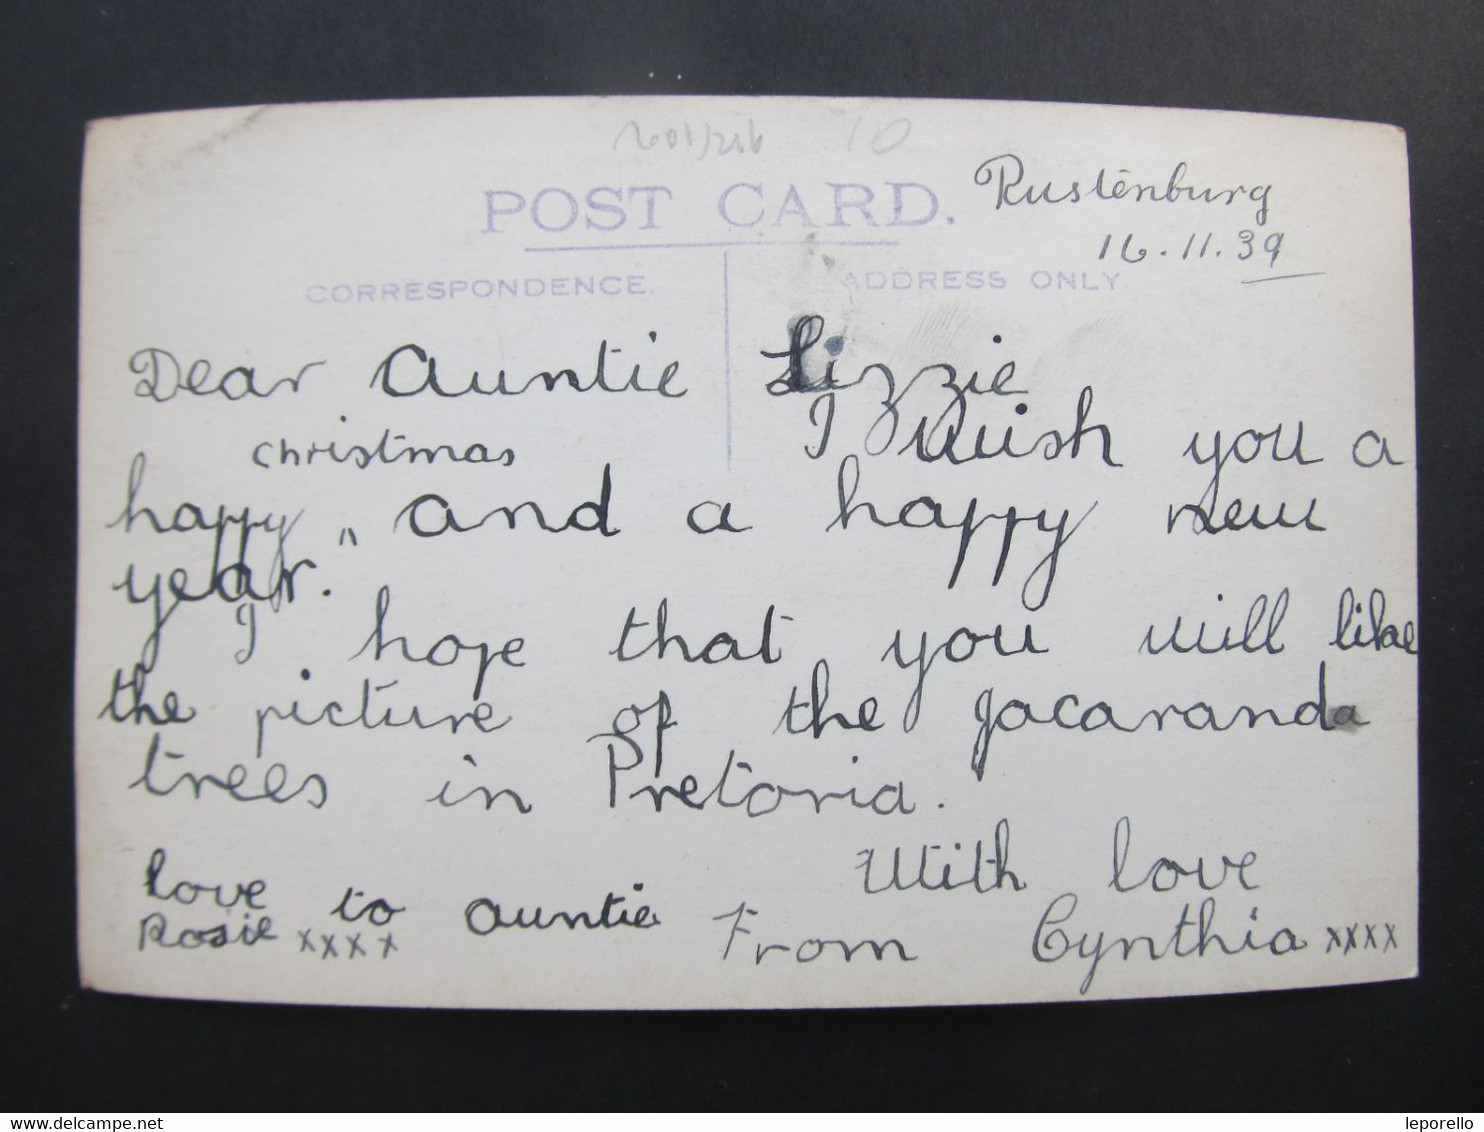 10
POST CARD.
Rustenburg
16.11.39
CORRESPONDENCE.
ADDRESS ONLY
Dear Auntie Lizzie
I wish you a
christmas
happy " and a happy new
year."
I hope that you will like
the picture of the jacaranda
trees in Pretoria.
With love
love to auntie
Rosie xxxx
From Cynthia xxxx
www.delcampe.net
leporello